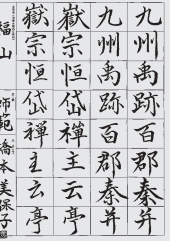 九州禹跡百郡秦并
九州禹跡百郡秦并
嶽宗恒岱禅主云亭
嶽宗恒岱禅主云亭
福山 師範 橋本美保子